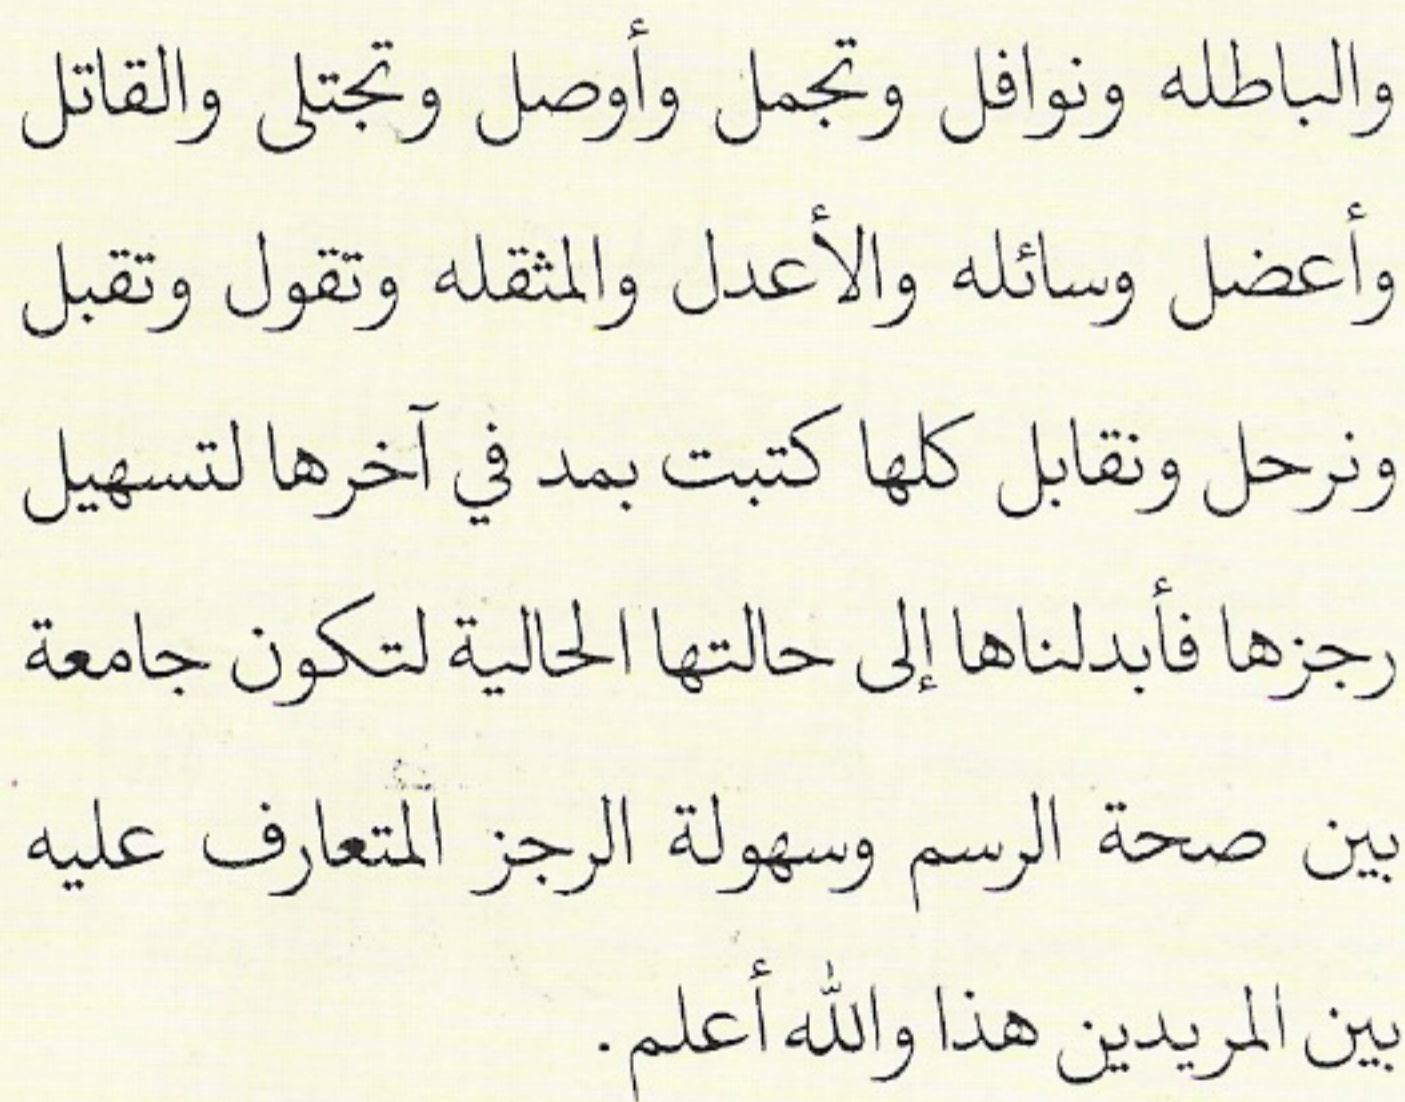 والباطله ونوافل وتجمل وأوصل وتجتلى والقاتل
وأعضل وسائله والأعدل والمثقله وتقول وتقبل
ونرحل ونقابل كلها كتبت بمد في آخرها لتسهيل
رجزها فأبدلناها إلى حالتها الحالية لتكون جامعة
بين صحة الرسم وسهولة الرجز المتعارف عليه
بين المريدين هذا والله أعلم.